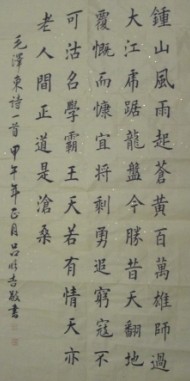 鍾山風雨起蒼黃百萬雄師過
大江虎踞龍盤今勝昔天翻地
覆慨而慷宜將剩勇追窮寇不
可沽名學霸王天若有情天亦
老人間正道是滄桑
毛澤東詩一首甲午年正月呂